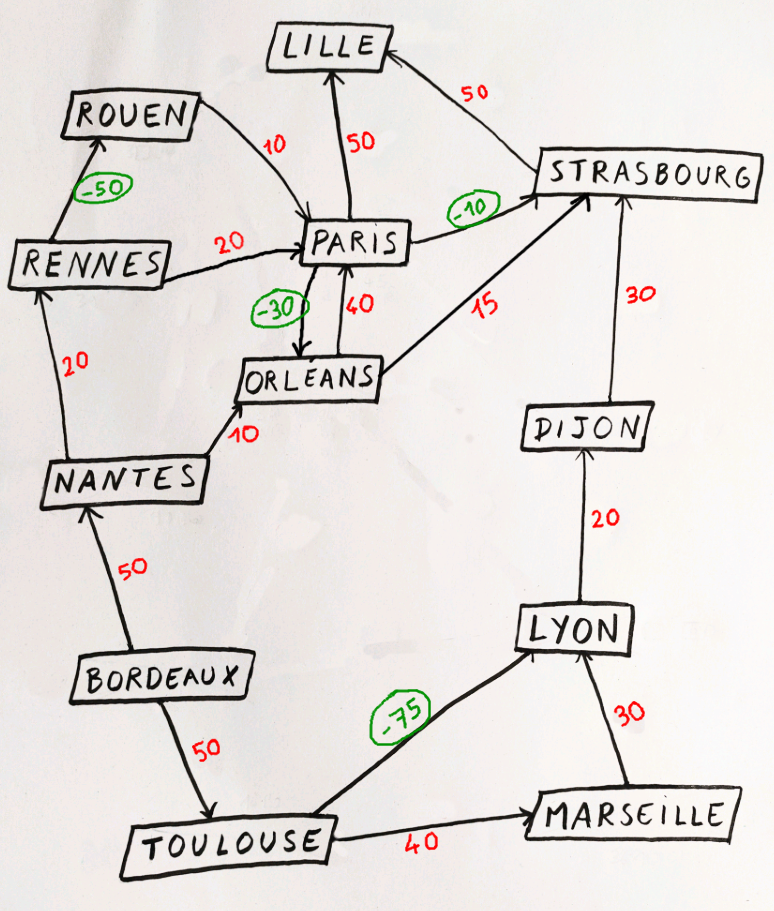 LILLE
ROUEN
50
10
50
STRASBOURG
-50
-10
PARIS
20
RENNES
-30
40
15
30
20
ORLÉANS
10
DIJON
NANTES
20
50
LYON
BORDEAUX
-75
30
50
MARSEILLE
TOULOUSE
40